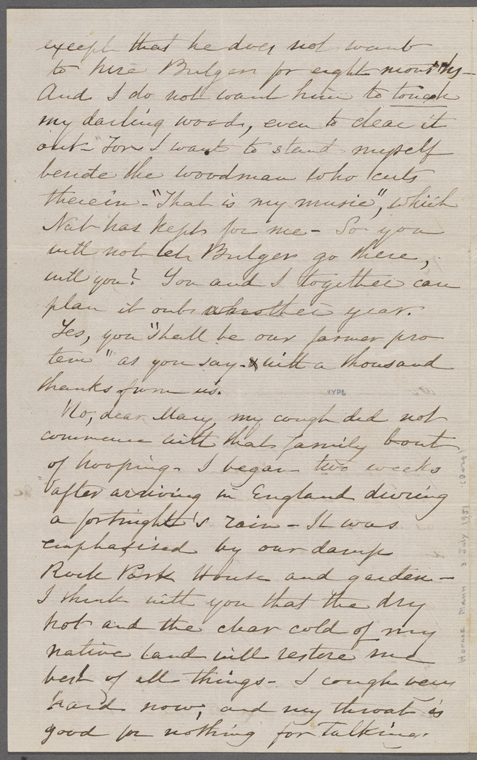 except that he does not want
to hire Bulger for eight months—
And I do not want him to touch
my darling wood, even to clear it
out. For I want to stand myself
beside the woodman who cuts
therein—"That is my music", which
Nat has kept for me— So you
will not let Bulger go there,
will you? You and I together can
plan it out another year.
Yes, you "shall be our farmer pro
tem" as you say. with a thousand
thanks from us.
No, dear Mary my cough did not
commence with that family bout
of hooping. I began two weeks
after arriving in England during
a fortnight's rain— It was
emphasised by our damp
Rock Park House and garden—
I think with you that the dry
hot and the clear cold of my
native land will restore me
best of all things— I cough very
hard now, and my throat is
good for nothing for talking.
Horace Mann
July